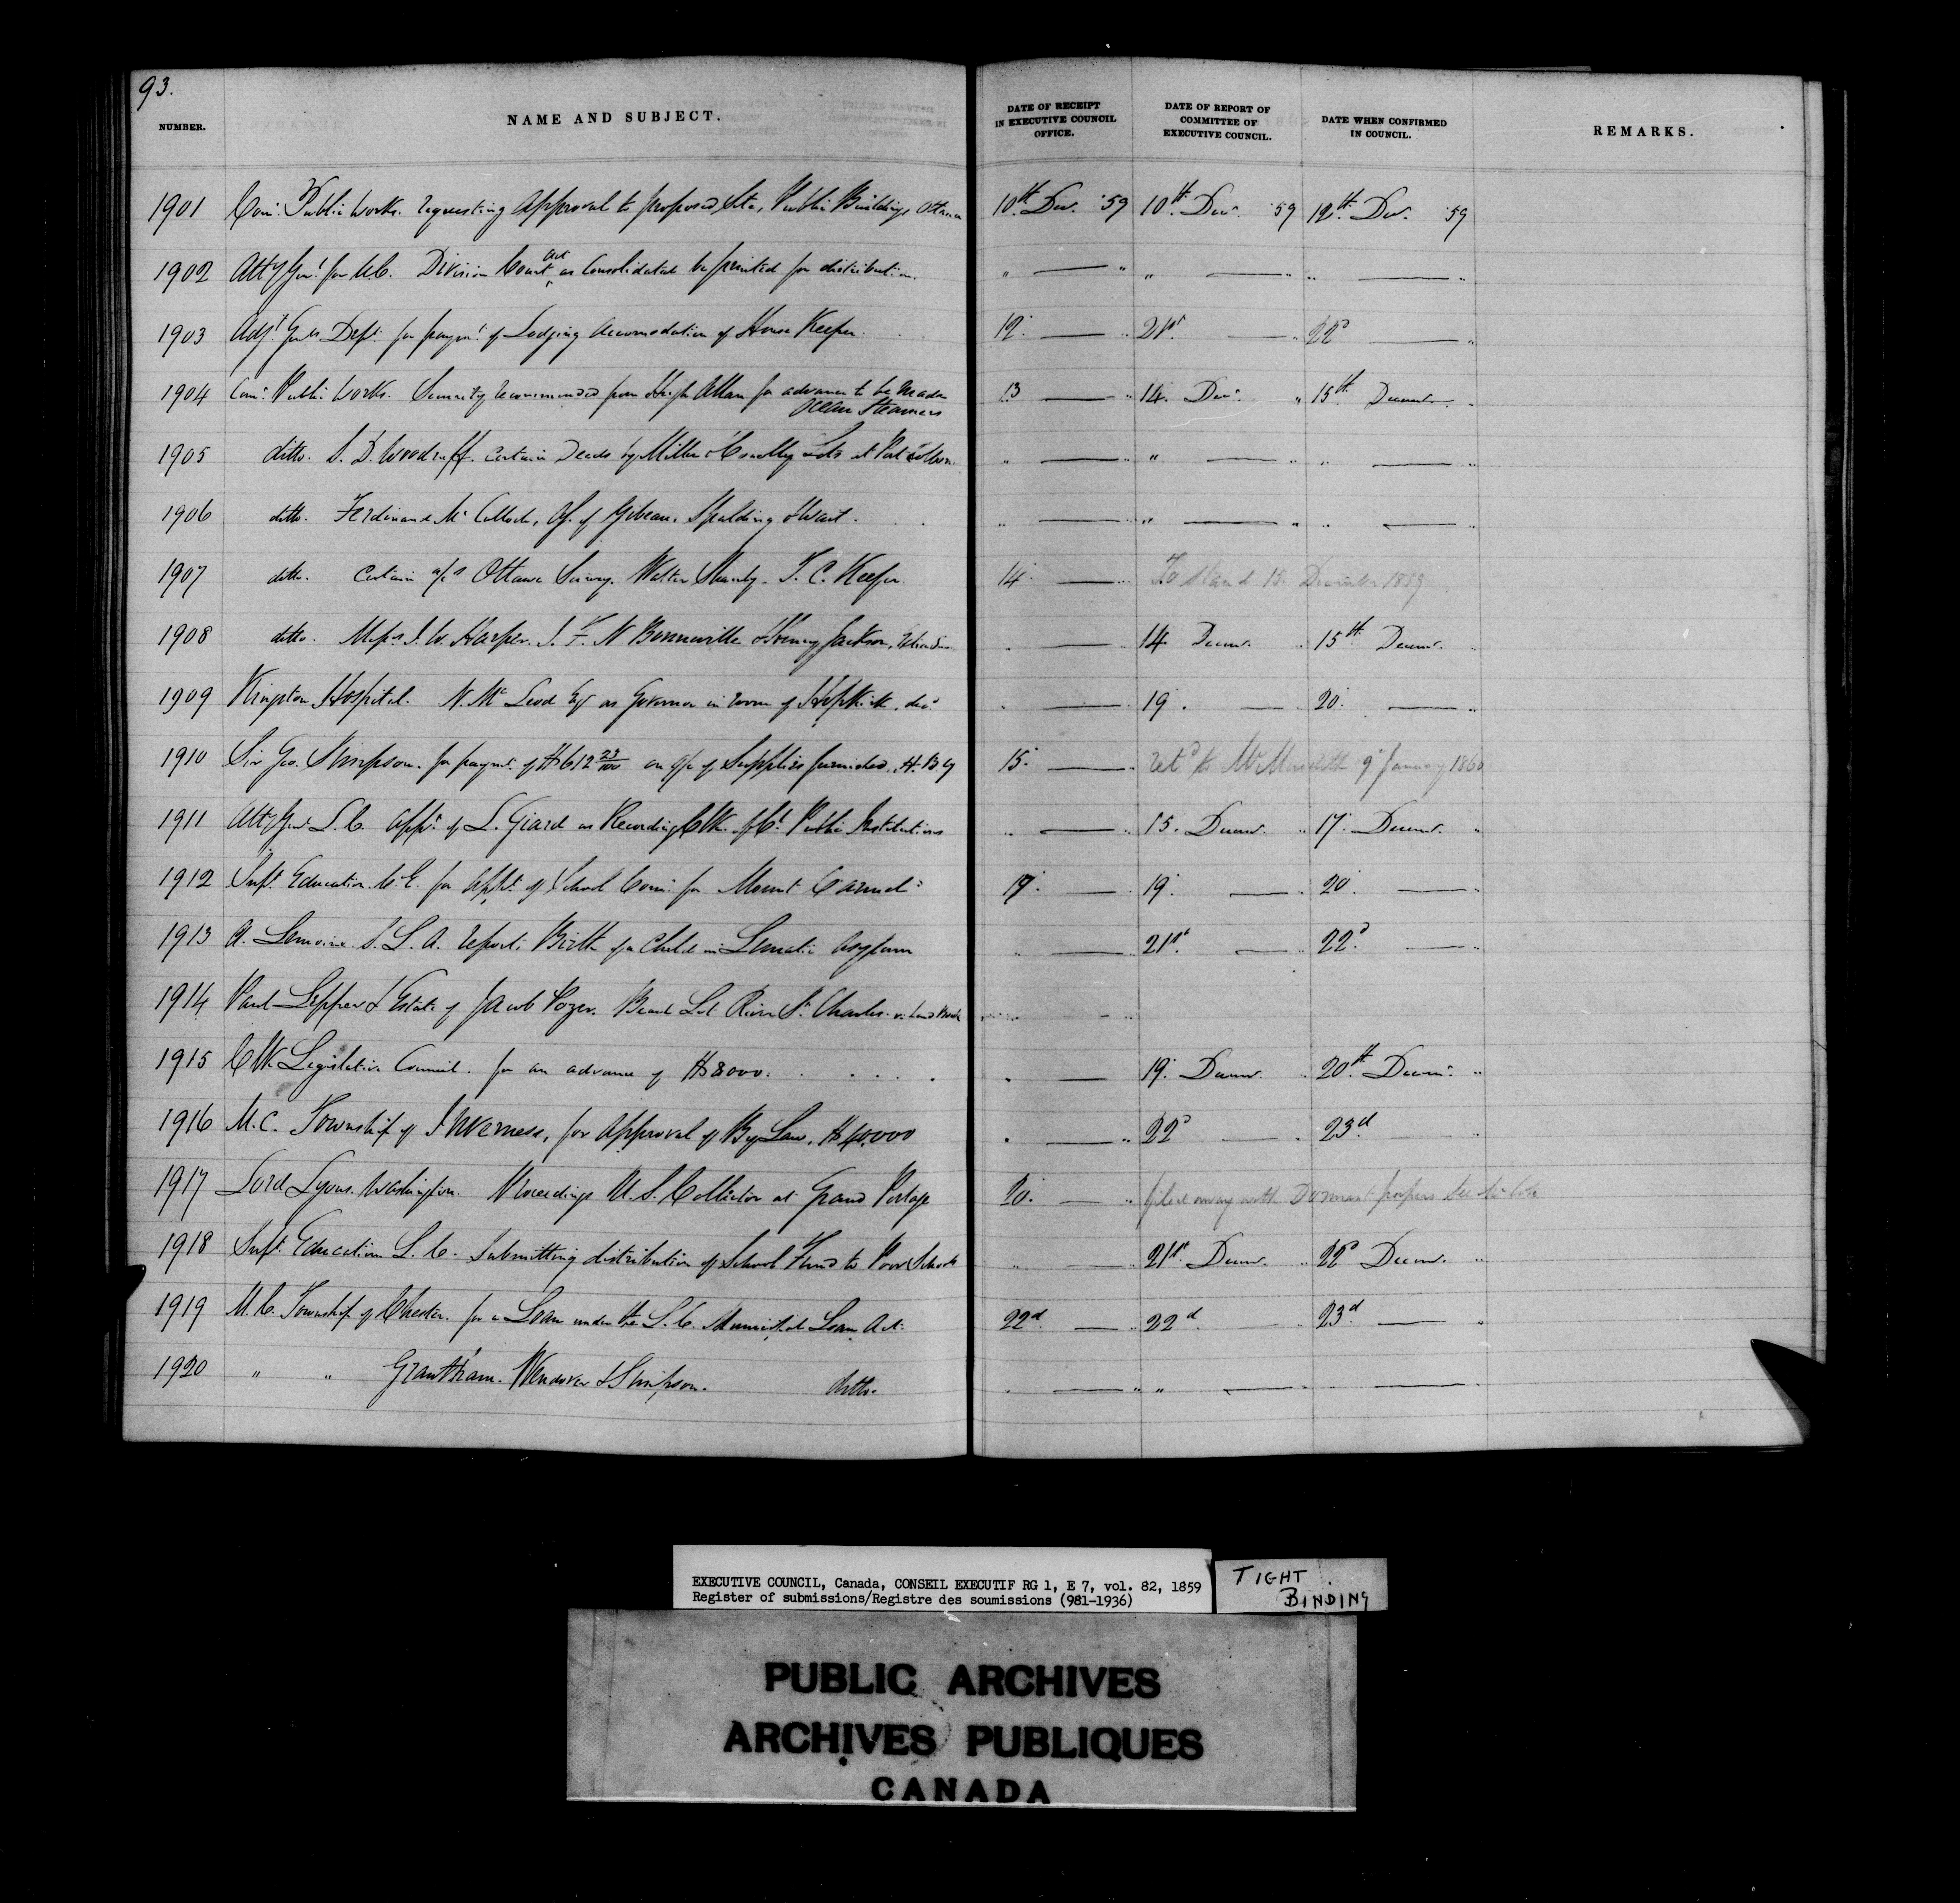 93.
NUMBER. NAME AND SUBJECT. DATE OF RECEIPT IN EXECUTIVE COUNCIL OFFICE. DATE OF REPORT OF COMMITTEE OF EXECUTIVE COUNCIL. DATE WHEN CONFIRMED IN COUNCIL. REMARKS.
1901 Comr. Public Works. requesting Approval to proposed Site, Public Buildings Ottawa 10th Decr. '59 10th Decr. '59 12th Decr. '59
1902 Atty Genl. for U.C. Division Court Act as Consolidated be printed for distribution. " — " " — " " — "
1903 Adjt. Genls. Dept. for paymt. of Lodging Accomodation of House Keeper. 12. — " 21st. — " 22d — "
1904 Comr. Public Works. Security recommended from Hugh Allan for advances to be made Ocean Steamers 13 — " 14. Decr. " 15th. Decemr. "
1905 ditto. S. D. Woodruff. Certain Deeds by Miller & Lots at Port Colborne " — " " — " " — "
1906 ditto. Ferdinand Mc Culloch, of Gibeau, Spalding & Wait. " — " " — " " — "
1907 ditto. Certain a/cs Ottawa Survey. Walter Shanly. T. C. Keefer. 14. — " To Stand 15. December 1859
1908 ditto. Messrs. J. W. Harper. J. F. N Bonneville & Henry Jackson, " — " 14 Decemr. " 15th Decemr. "
1909 Kingston Hospital. N. Mc Leod Esq as Governor in room of Hopkirk, decd. " — " 19. — 20. — "
1910 Sir Geo. Simpson. for paymt. of $612 23/100 on a/c of Supplies furnished. H. B Cy 15. — " retd to Mr Meredith 9 January 1860
1911 Atty Genl L. C. appt. of L. Giard as Recording Clk. Public Institutions " — " 15. Decemr. " 17. Decemr. "
1912 Supt. Education C. E. for appt. of School Comr. for Mount Carmel. 19. — " 19. — " 20. — "
1913 A. Lemoine S. L. A. reports Birth of a Child in Lunatic Asylum " — " 21st. — " 22d. — "
1914 Paul Lepper & Estate of Jacob Pozer. Beach Lot River St. Charles. v. Land Book
1915 Clk Legislative Council. for an advance of $8000. . . . . " — 19. Decemr. " 20th. Decemr. "
1916 M.C. Township of Inverness, for Approval of By Law, $40,000 " — " 22d — " 23d. — "
1917 Lord Lyons. Washington. Proceedings U. S. Collector at Grand Portage 20. — " filed away with Dormant papers
1918 Supt. Education L. C. Submitting distribution of School Fund to Poor Schools " — " 21st. Decemr. " 22d Decemr. "
1919 M. C. Township of Chester. for a Loan under the L. C. Municipal Loan Act. 22d. — " 22d. — 23d. — "
1920 " " Grantham. Wendover & Simpson. ditto. " — " " — " — "
EXECUTIVE COUNCIL, Canada, CONSEIL EXECUTIF RG 1, E 7, vol. 82, 1859
Register of submissions/Registre des soumissions (981-1936)
TIGHT BINDING
PUBLIC ARCHIVES
ARCHIVES PUBLIQUES
CANADA